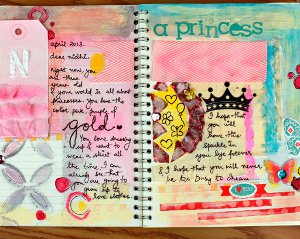 N
april 2013.
dear nidhi.
right now, you
are three
years old
& your world is all about
princesses. you love the
color pink, purple &
gold.
You love dressing
up & want to
wear a skirt all
the time. I can
already see that
you are going to
grow up to
love clothes.
a princess
I hope that
you will
have this
sparkle in
your eye forever.
& I hope that you will never
be too busy to dream...
YOU